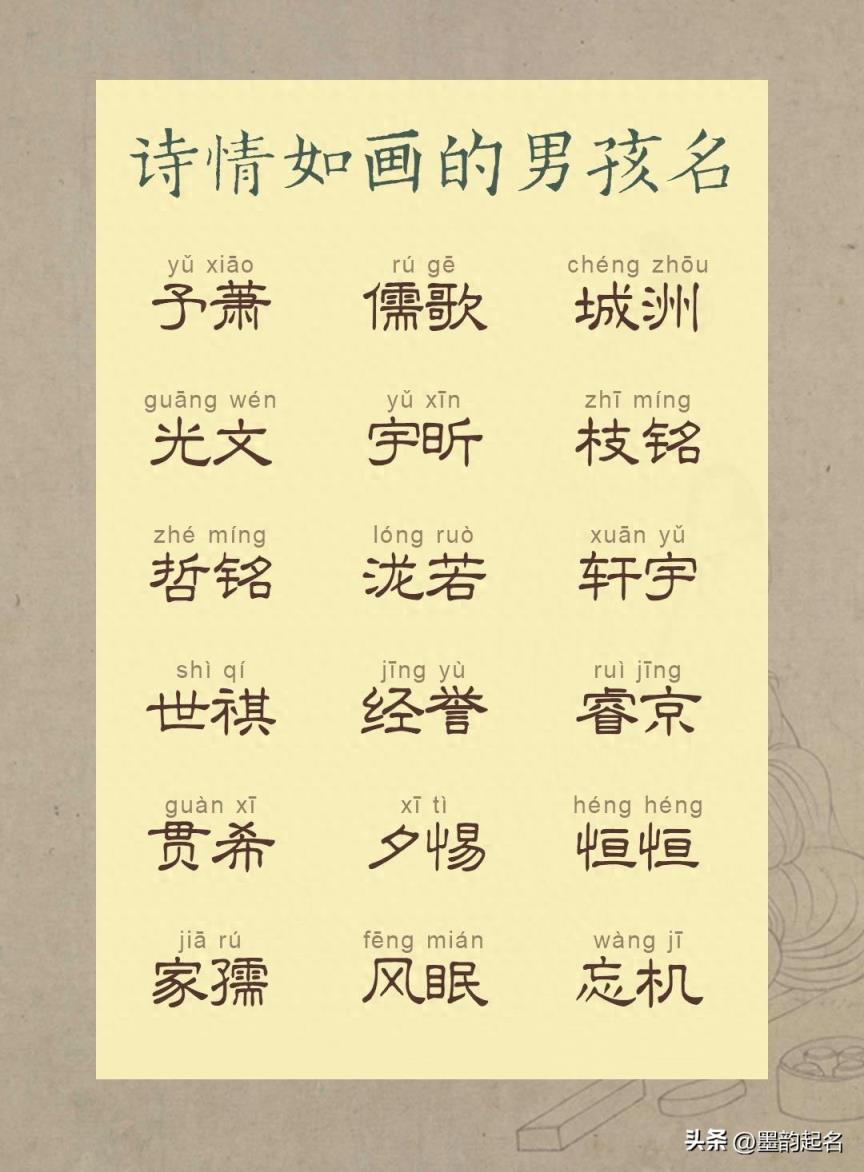 诗情如画的男孩名
yǔ xiāo rú gē chéng zhōu
予萧 儒歌 城洲
guāng wén yǔ xīn zhī míng
光文 宇昕 枝铭
zhé míng lóng ruò xuān yǔ
哲铭 泷若 轩宇
shì qí jīng yù ruì jīng
世祺 经誉 睿京
guàn xī xī tì héng héng
贯希 夕惕 恒恒
jiā rú fēng mián wàng jī
家孺 风眠 忘机
头条 @墨韵起名